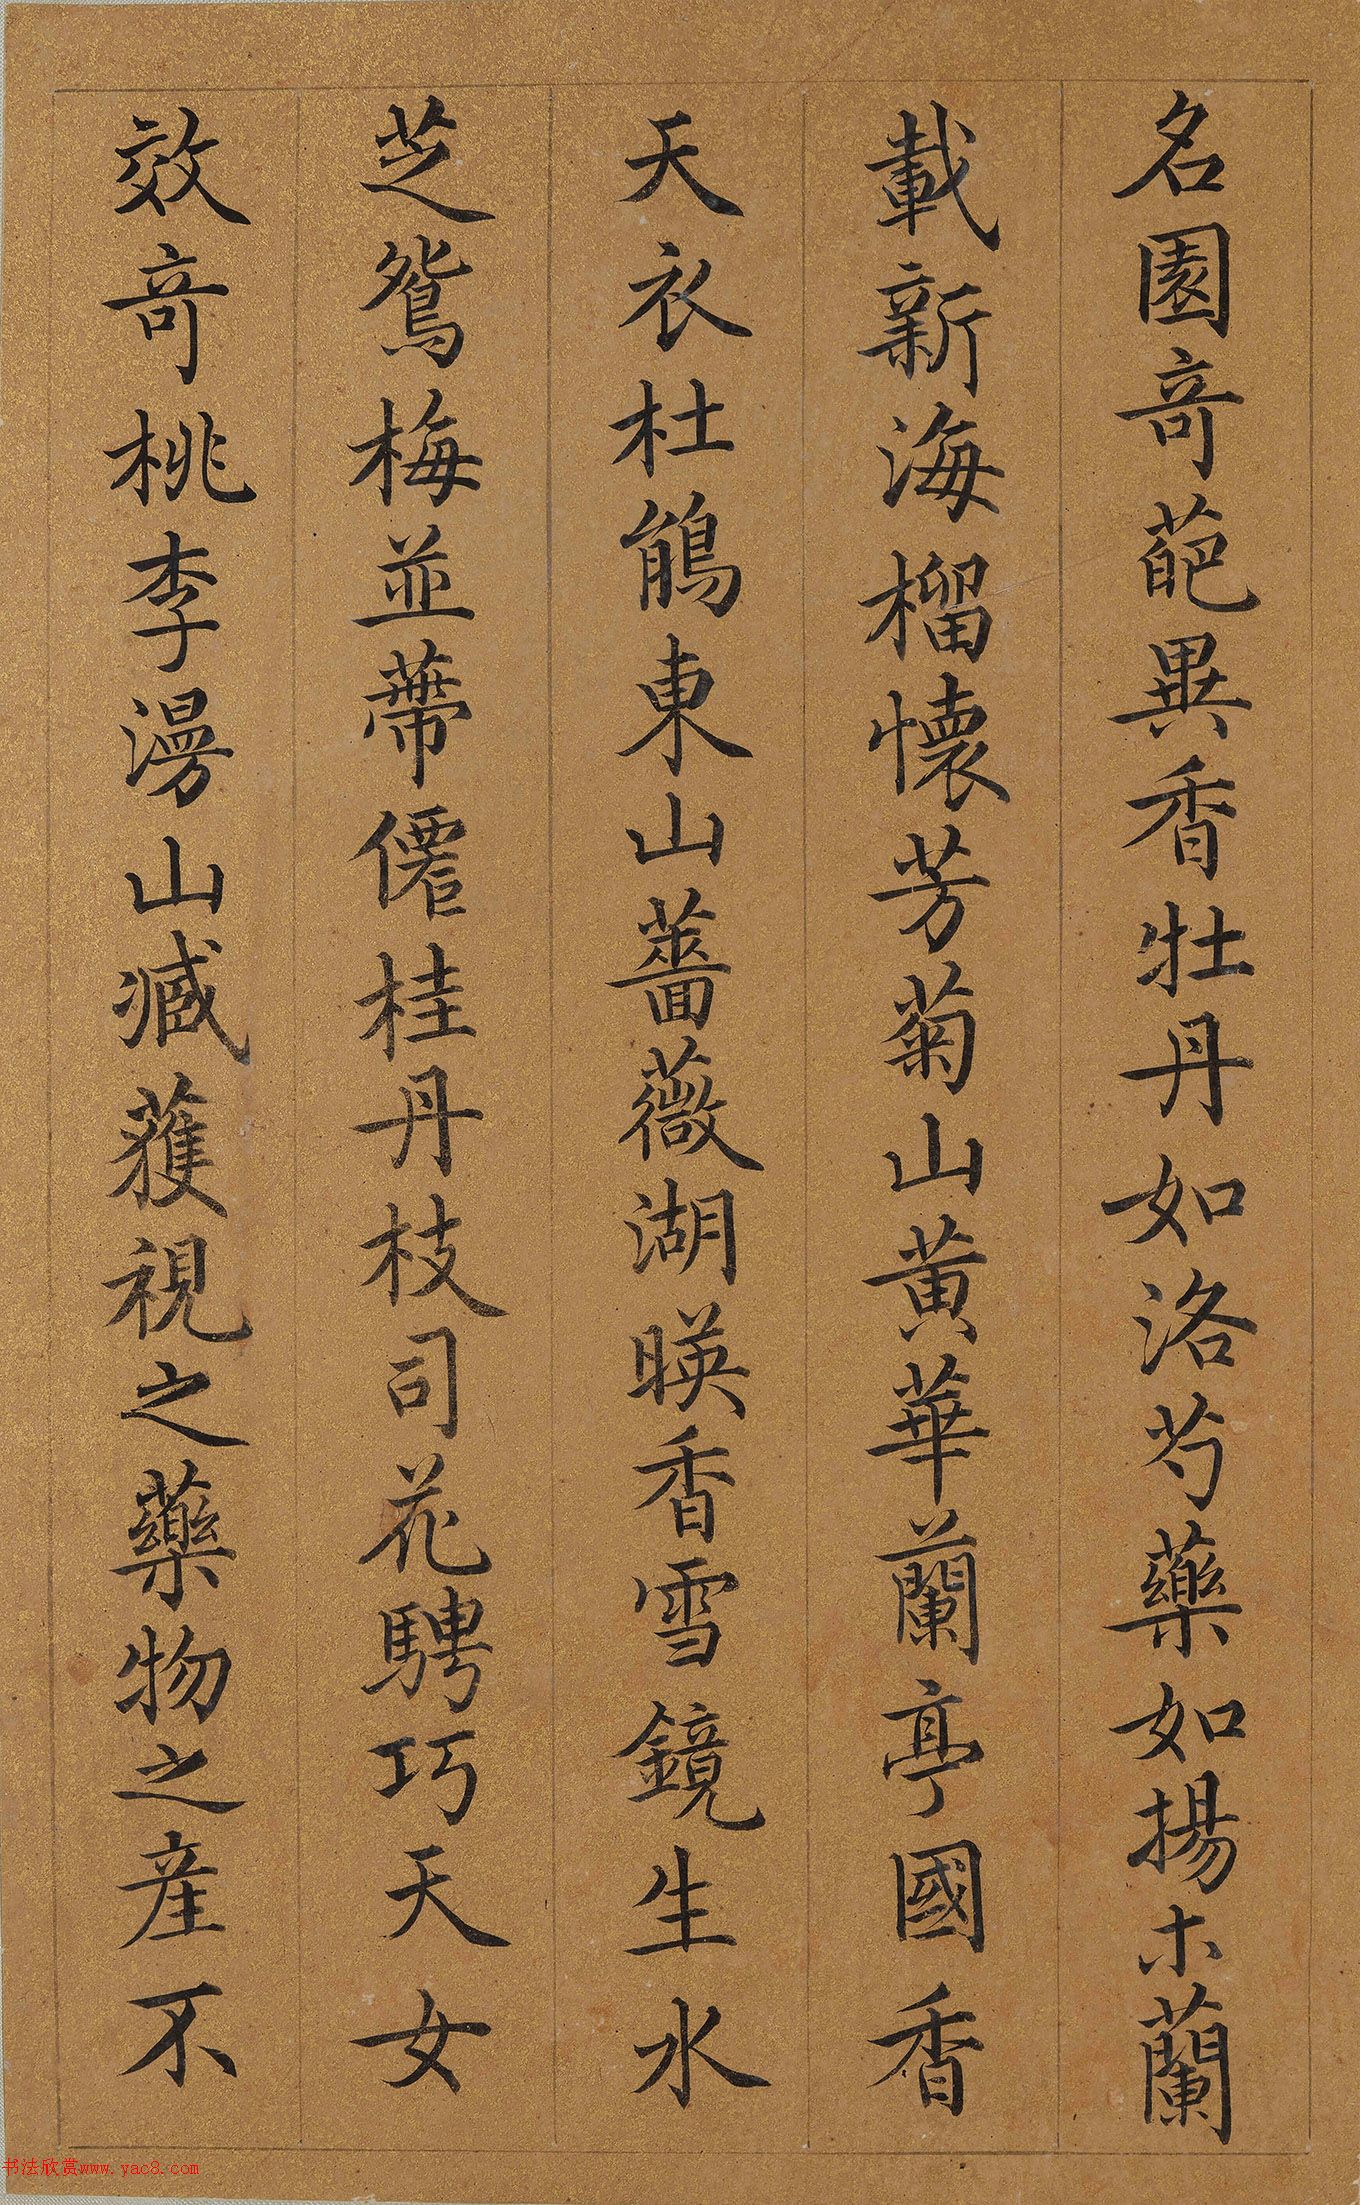 名園竒葩異香牡丹如洛芍藥如揚木蘭
載新海榴懷芳菊山黄華蘭亭國香
天衣杜鵑東山薔薇湖暎香雪鏡生水
芝鴛梅並蔕僊桂丹枝司花騁巧天女
效竒桃李漫山臧蒦視之藥物之産不
书法欣赏www.yac8.com